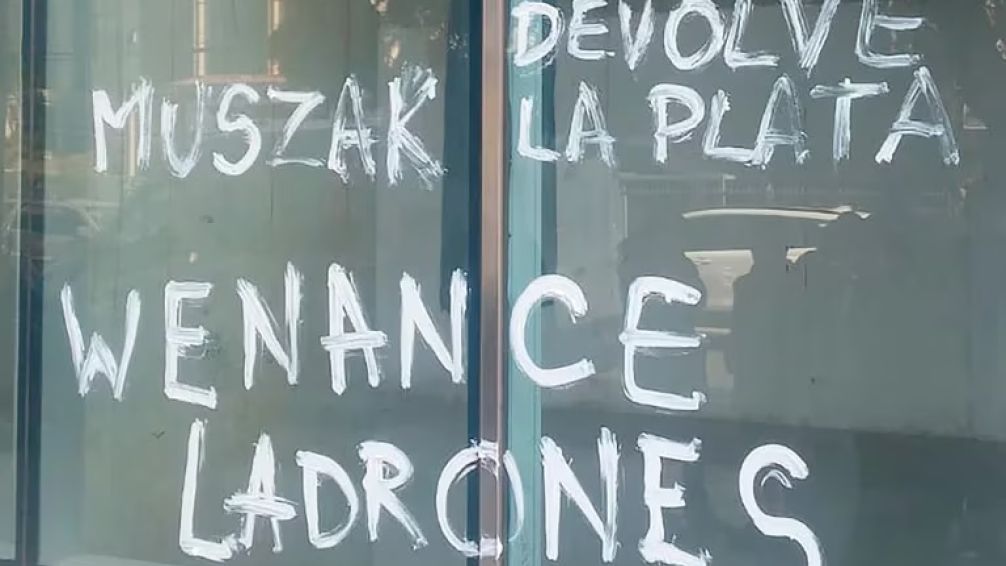 MUSZAK DEVOLVE
LA PLATA
WENANCE
LADRONES